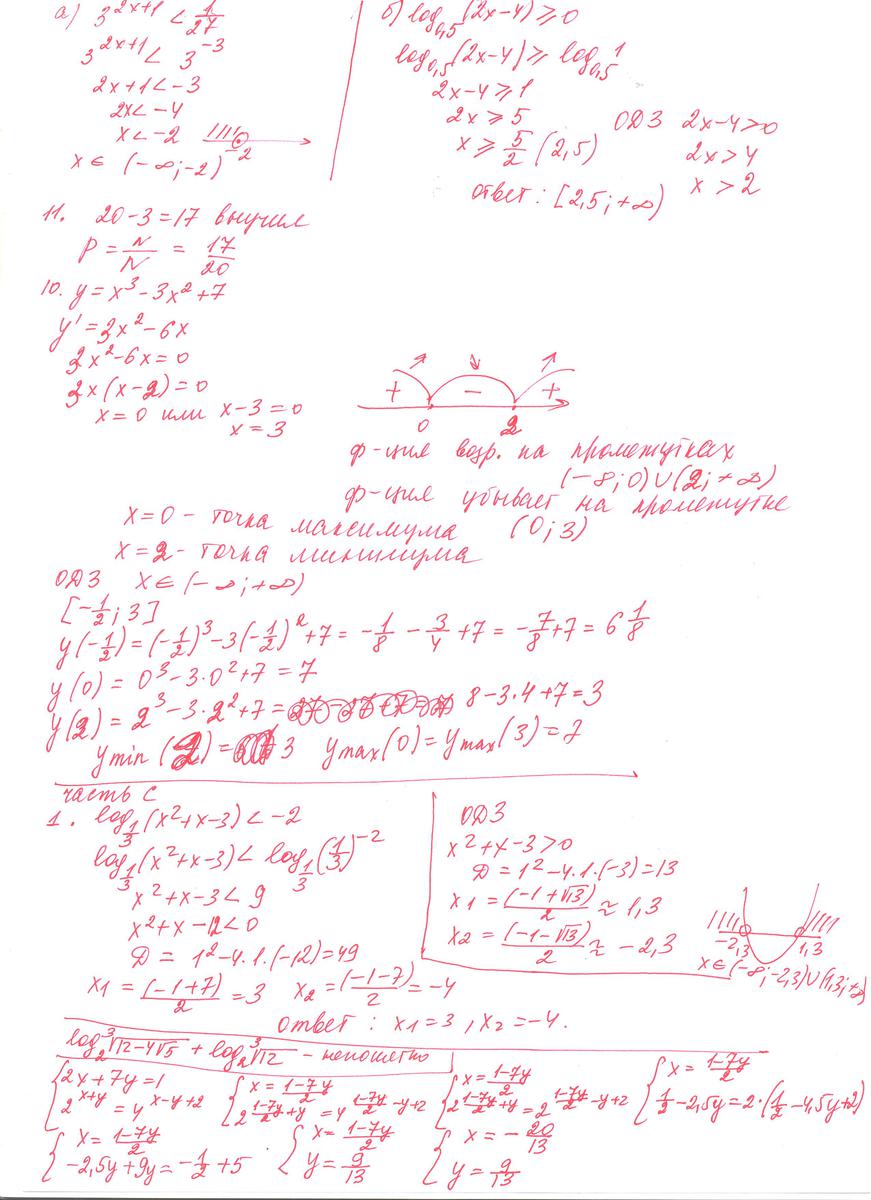 а) 3^{2x+1} < \frac{1}{27}
3^{2x+1} < 3^{-3}
2x+1 < -3
2x < -4
x < -2
-2
x ∈ (-∞; -2)
б) log_{0,5}(2x-4) ⩾ 0
log_{0,5}(2x-4) ⩾ log_{0,5} 1
2x-4 ⩾ 1
2x ⩾ 5
x ⩾ \frac{5}{2} (2,5)
ОДЗ 2x-4>0
2x>4
x>2
ответ: [2,5; +∞)
11. 20-3=17 выучил
P = \frac{N}{N} = \frac{17}{20}
10. y = x³ - 3x² + 7
y' = 3x² - 6x
3x² - 6x = 0
3x(x-2) = 0
x=0 или x-3=0
x=3
+ - +
0 2
ф-ция возр. на промежутках
(-∞; 0) ∪ (2; +∞)
ф-ция убывает на промежутке
(0; 3)
x=0 - точка максимума
x=2 - точка минимума
ОДЗ x ∈ (-∞; +∞)
[-\frac{1}{2}; 3]
y(-\frac{1}{2}) = (-\frac{1}{2})³ - 3(-\frac{1}{2})² + 7 = -\frac{1}{8} - \frac{3}{4} + 7 = -\frac{7}{8} + 7 = 6\frac{1}{8}
y(0) = 0³ - 3·0² + 7 = 7
y(2) = 2³ - 3·2² + 7 = 8 - 3·4 + 7 = 3
y min (2) = 3 y max (0) = y max (3) = 7
часть С
1. log_{\frac{1}{3}}(x²+x-3) < -2
log_{\frac{1}{3}}(x²+x-3) < log_{\frac{1}{3}}(\frac{1}{3})^{-2}
x²+x-3 < 9
x²+x-12 < 0
D = 1² - 4·1·(-12) = 49
x1 = \frac{(-1+7)}{2} = 3 x2 = \frac{(-1-7)}{2} = -4
ОДЗ
x²+x-3>0
D = 1² - 4·1·(-3) = 13
x1 = \frac{(-1+√13)}{2} ≈ 1,3
x2 = \frac{(-1-√13)}{2} ≈ -2,3
-2,3 1,3
x ∈ (-∞; -2,3) ∪ (1,3; +∞)
ответ: x1=3, x2=-4.
log_2 ³√12-4√5 + log_2 ³√12 - непонятно
{2x+7y=1
2^{x+y} = 4^{x-y+2}
{x = \frac{1-7y}{2}
2^{\frac{1-7y}{2}+y} = 4^{\frac{1-7y}{2}-y+2}
{x = \frac{1-7y}{2}
2^{\frac{1-7y}{2}+y} = 2^{\frac{1-7y}{2}-y+2}
{x = \frac{1-7y}{2}
\frac{1}{2}-2,5y = 2·(\frac{1}{2}-4,5y+2)
{x = \frac{1-7y}{2}
-2,5y+9y = -\frac{1}{2}+5
{x = \frac{1-7y}{2}
y = \frac{9}{13}
{x = -\frac{20}{13}
y = \frac{9}{13}